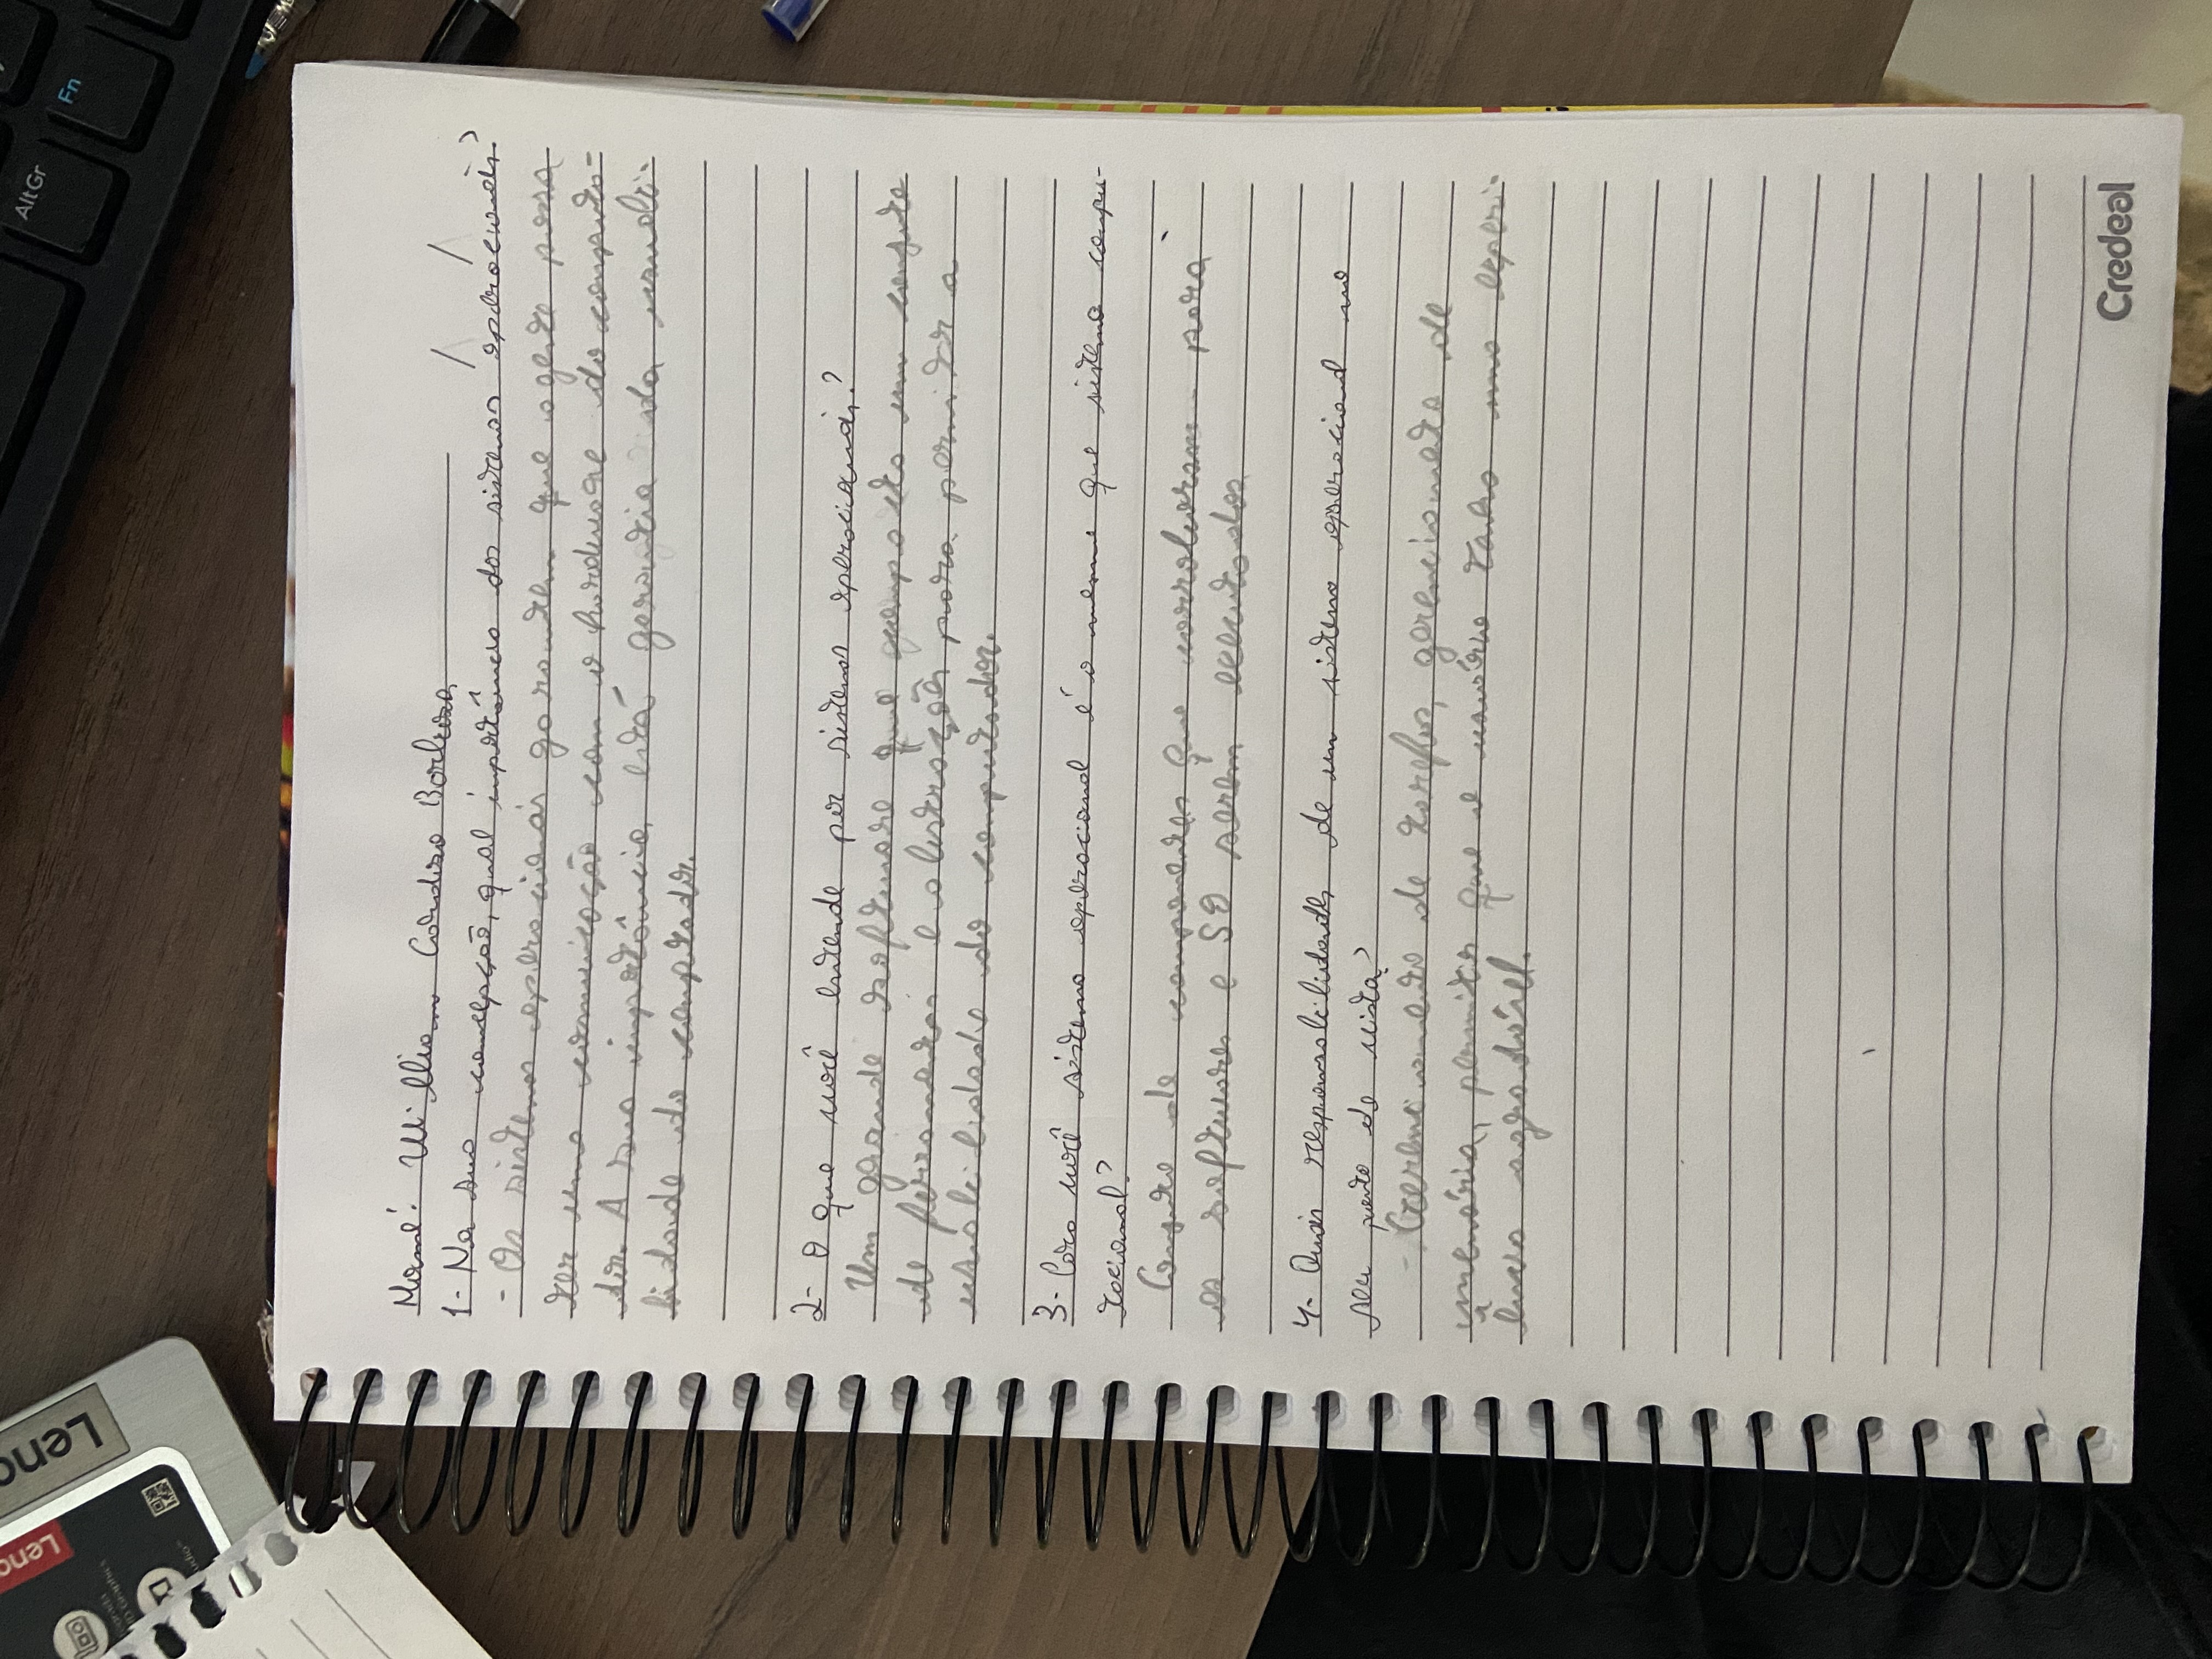 Lenovo
Lenovo
AltGr
Fn
Nome: Willian Cardoso Barbosa
1- Na sua concepção, qual importância dos sistemas operacionais?
- Os sistemas operacionais garantem que a gente possa
ter uma comunicação com o hardware do computa-
dor. A sua importância está garantia da usuabi-
lidade do computador.
2- O que você entende por sistemas operacionais?
Um grande software que comporta um conjuto
de ferramentas e abstrações para permitir a
usabilidade do computador.
3- Para você sistema operacional é o mesmo que sistema compu-
tacional?
Conjuto de componentes que corroboram para
os softwares e SO serem executados
4- Quais responsabilidades de um sistema operacional no
seu ponto de vista?
- Gerenciamento de tarefas, gerenciamento de
memória, permitir que o usuário tenha uma experi-
ência agradável.
Credeal